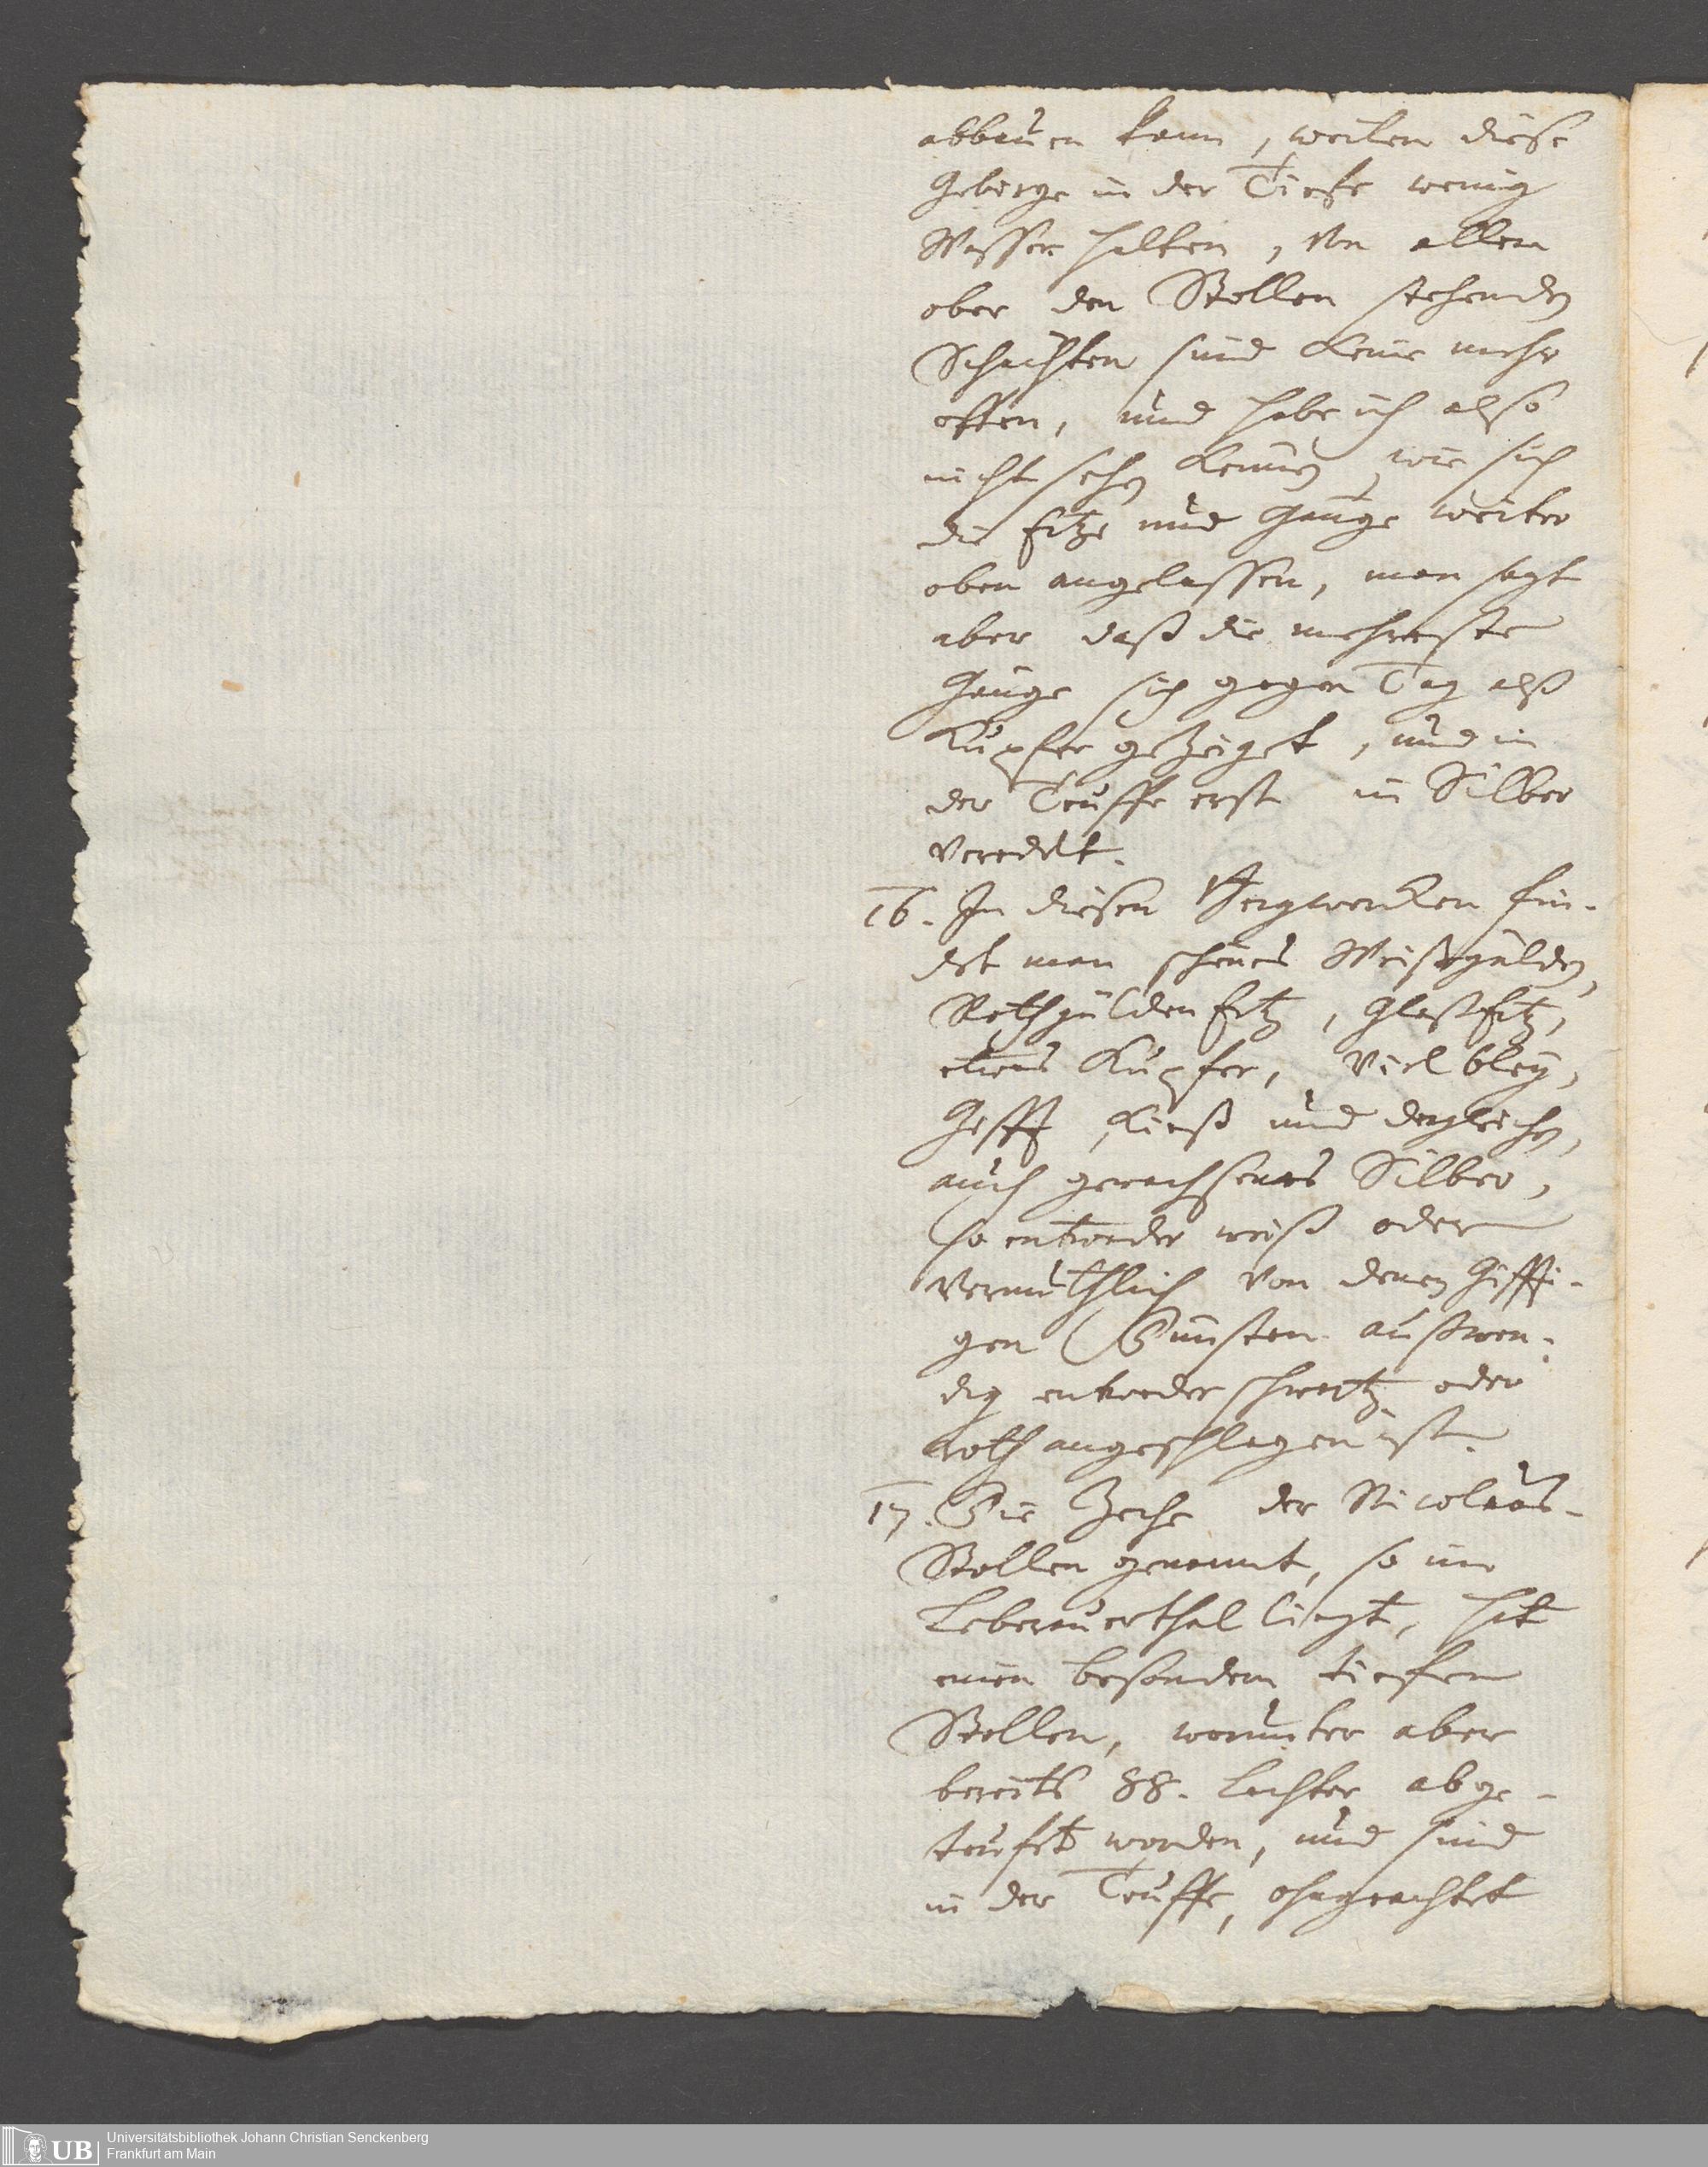 abbauen kann, weilen diese
Gebirge in der Tiefe wenig
Wasser halten, von allen
ober den Stollen stehenden
Schachten sind keine mehr
offen, und habe ich also
nicht sehen können wie sich
die Ertze und Gänge weiter
oben angelassen, man sagt
aber daß die mehreste
Gänge sich gegen Tag alß
Kupfer gezeiget, und in
der Teuffe erst in Silber
veredelt.
16. In diesen Bergwercken fin-
det man schönes Weißgülden,
Rothgülden Ertz, Glaß Ertz,
etwas Kupfer, viel bley,
Gifft, Kieß und dergleichen,
auch gewachsenes Silber,
so entweder weiß oder
vermuthlich von denen Giffti-
gen Dünsten außwen-
dig entweder schwartz oder
roth angeschlagen ist.
17. Die Zeche der Nicolaus-
Stollen genannt, so im
Leberauerthal liegt, hat
einen besondern tiefen
Stollen, worunter aber
bereits 88. Lachter abge-
teufet worden, und sind
in der Teuffe, ohngeachtet
UB Universitätsbibliothek Johann Christian Senckenberg
Frankfurt am Main